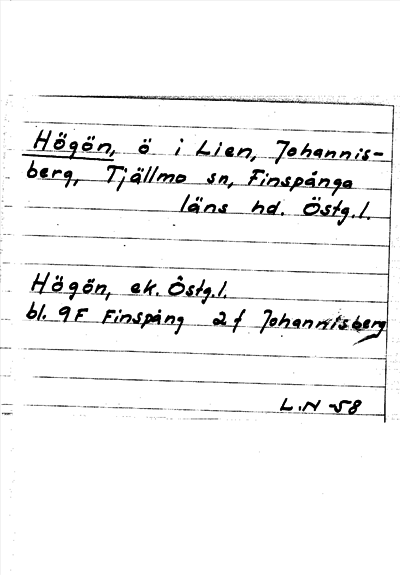 Högön, ö i Lien, Johannis-
berg, Tjällmo sn, Finspånga
läns hd. Östg.l.
Högön, ek. Östg.l.
bl. 9F Finspång 2f Johannisberg
L.N -58